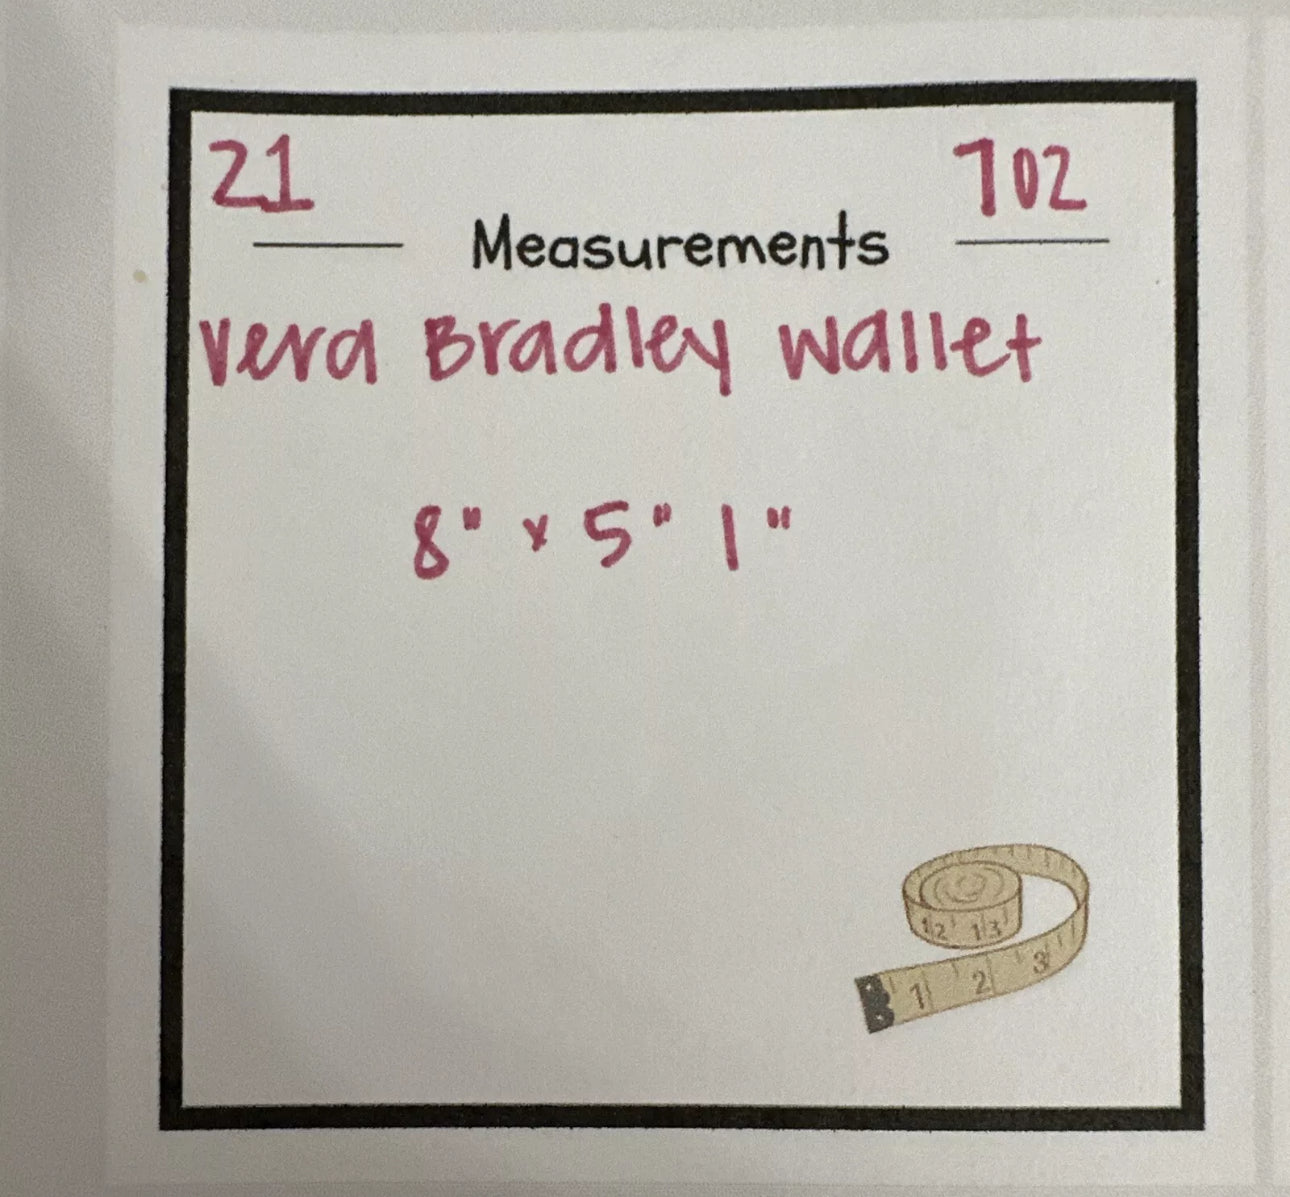 21 702
Measurements
Vera Bradley wallet
8" x 5" 1"
12 13
1 2 3